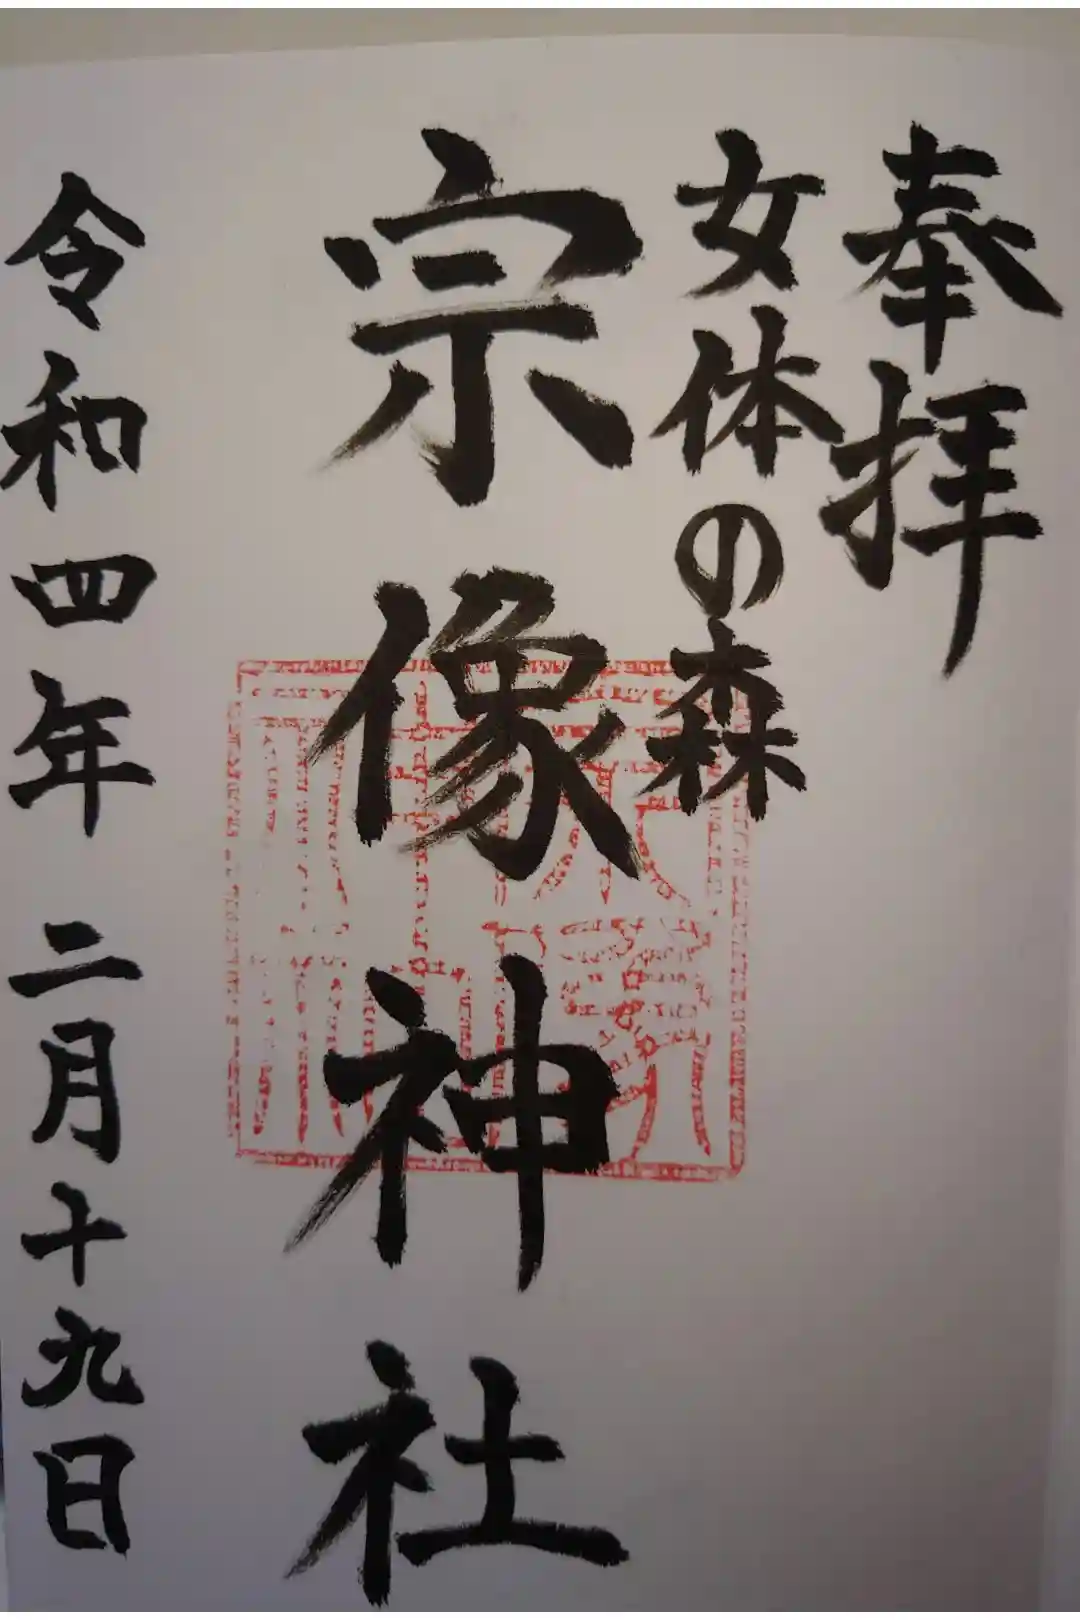 奉拝
女体の森
宗像神社
令和四年二月十九日